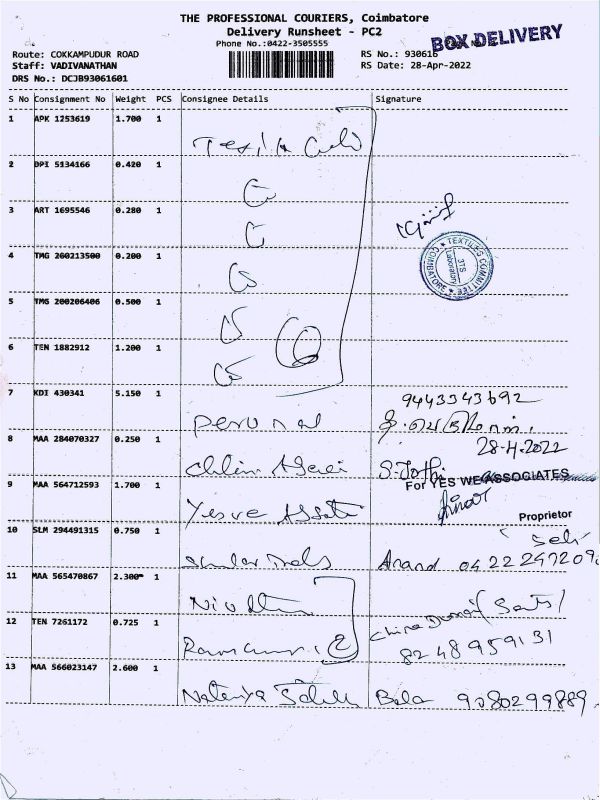 THE PROFESSIONAL COURIERS, Coimbatore
Delivery Runsheet - PC2
Phone No.:0422-3505555
BOX DELIVERY
Route: COKKAMPUDUR ROAD
RS No.: 930616
Staff: VADIVANATHAN
RS Date: 28-Apr-2022
DRS No.: DCJB93061601
S No Consignment No Weight PCS Consignee Details Signature
1 APK 1253619 1.700 1
2 DPI 5134166 0.420 1
3 ART 1695546 0.280 1
4 TMG 260213500 0.200 1
TEXTILES COMMITTEE COIMBATORE
Laboratory
5 TMG 200206406 0.500 1
6 TEN 1882912 1.200 1
6
7 KDI 430341 5.150 1
9443343692
Perumal
28-4-2022
8 MAA 284070327 0.250 1
S. Jothi
For YES WE ASSOCIATES
9 MAA 564712593 1.700 1
Proprietor
10 SLM 294491315 0.750 1
Anand 0422247209
11 MAA 565470867 2.300 1
12 TEN 7261172 0.725 1
2
8248959131
13 MAA 566023147 2.600 1
Bala 9080299889